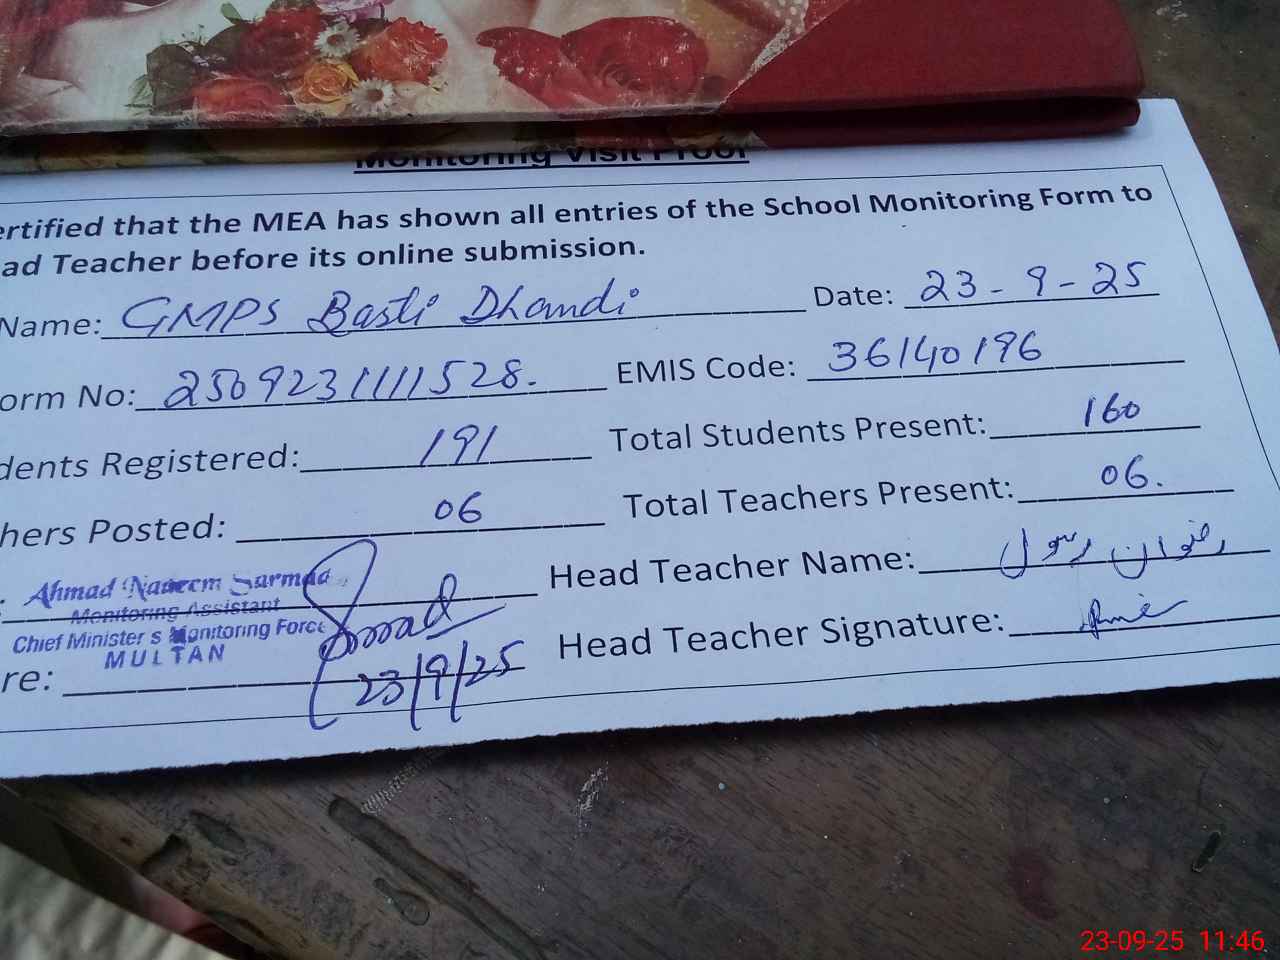 Monitoring Visit Proof
ertified that the MEA has shown all entries of the School Monitoring Form to
ad Teacher before its online submission.
Name: GMPS Basti Dhandi Date: 23-9-25
orm No: 2509231111528. EMIS Code: 36140196
dents Registered: 191 Total Students Present: 160
hers Posted: 06 Total Teachers Present: 06.
Ahmad Nadeem Sarmad Head Teacher Name: رضوان رسول
Monitoring Assistant
Chief Minister s Monitoring Force
MULTAN
re: 23/9/25 Head Teacher Signature:
23-09-25 11:46